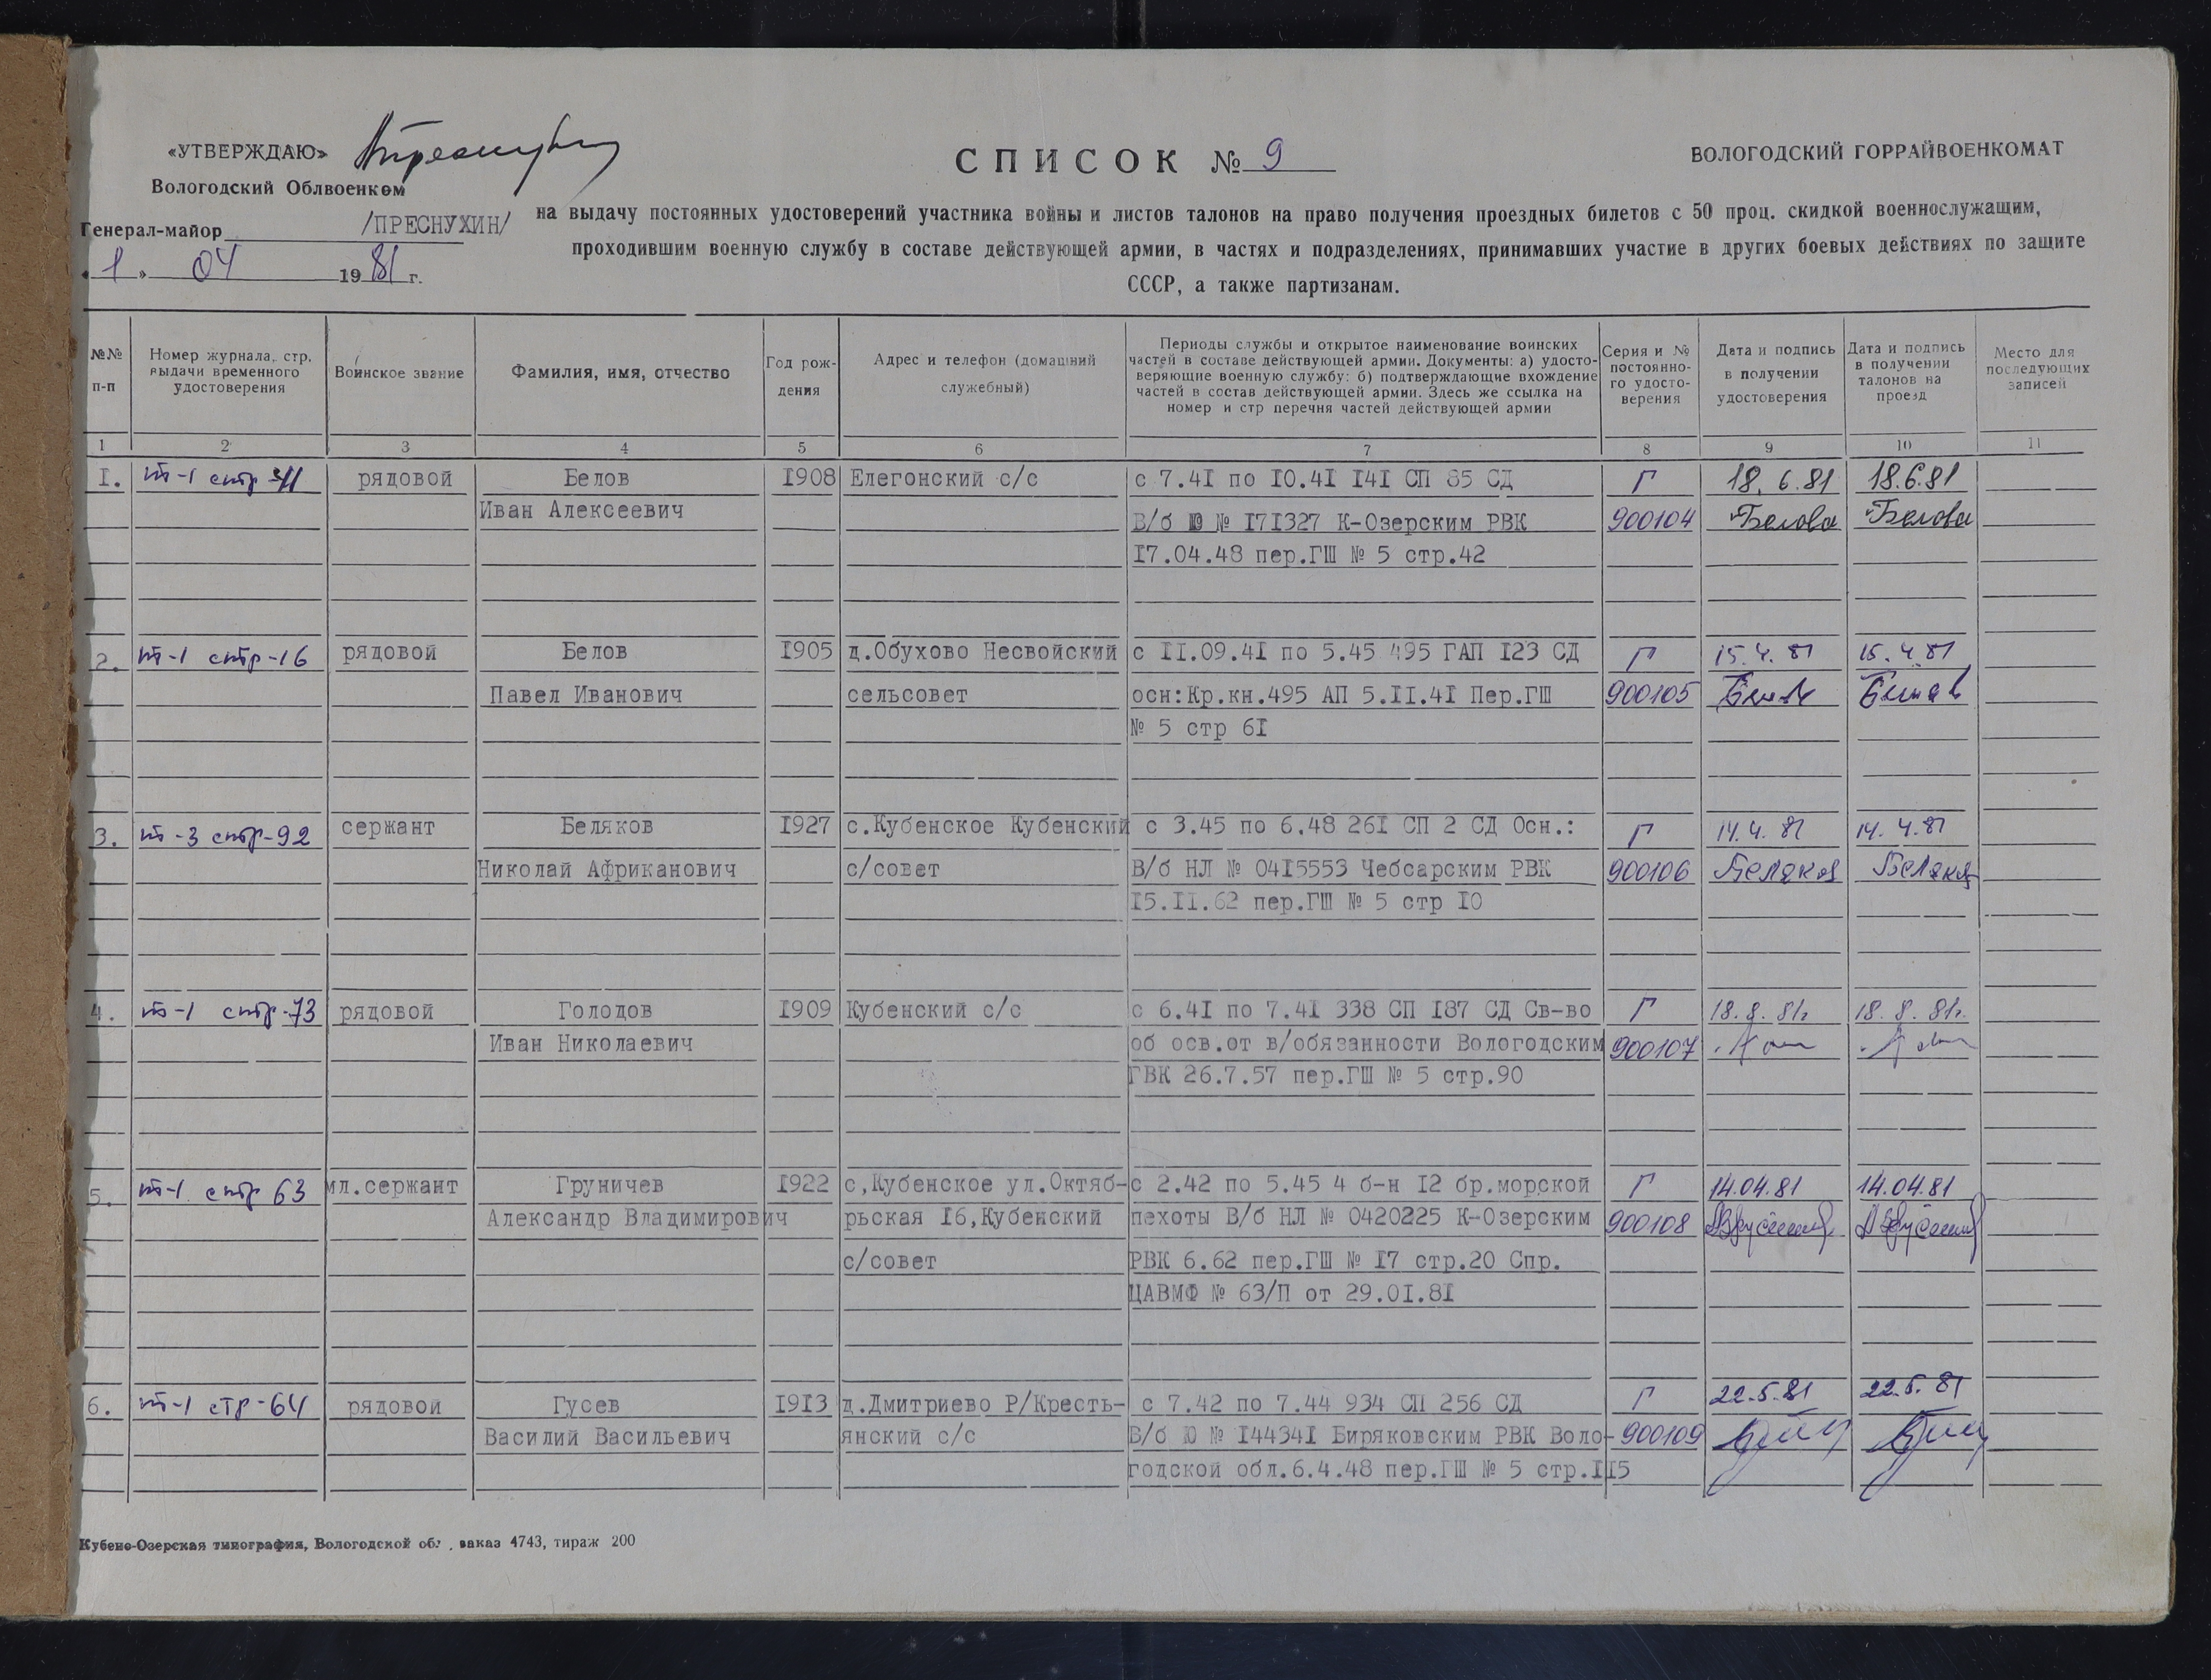 «УТВЕРЖДАЮ»
Вологодский Облвоенком
Генерал-майор /ПРЕСНУХИН/
«1» 04 1981 г.
СПИСОК № 9
ВОЛОГОДСКИЙ ГОРРАЙВОЕНКОМАТ
на выдачу постоянных удостоверений участника войны и листов талонов на право получения проездных билетов с 50 проц. скидкой военнослужащим,
проходившим военную службу в составе действующей армии, в частях и подразделениях, принимавших участие в других боевых действиях по защите
СССР, а также партизанам.
№№ п-п
Номер журнала, стр. выдачи временного удостоверения
Воинское звание
Фамилия, имя, отчество
Год рож-дения
Адрес и телефон (домашний служебный)
Периоды службы и открытое наименование воинских
частей в составе действующей армии. Документы: а) удосто-
веряющие военную службу; б) подтверждающие вхождение
частей в состав действующей армии. Здесь же ссылка на
номер и стр перечня частей действующей армии
Серия и № постоянно-го удосто-верения
Дата и подпись в получении удостоверения
Дата и подпись в получении талонов на проезд
Место для последующих записей
1 2 3 4 5 6 7 8 9 10 11
1. т-1 стр рядовой Белов 1908 Елегонский с/с с 7.41 по 10.41 141 СП 85 СД Г 18.6.81 18.6.81
Иван Алексеевич В/б Ю № 171327 К-Озерским РВК 900104 Белова Белова
17.04.48 пер.ГШ № 5 стр.42
2. т-1 стр-16 рядовой Белов 1905 д.Обухово Несвойский с 11.09.41 по 5.45 495 ГАП 123 СД Г 15.4.81 15.4.81
Павел Иванович сельсовет осн:Кр.кн.495 АП 5.11.41 Пер.ГШ 900105 Белов Белов
№ 5 стр 61
3. т-3 стр-92 сержант Беляков 1927 с.Кубенское Кубенский с 3.45 по 6.48 261 СП 2 СД Осн.: Г 14.4.81 14.4.81
Николай Африканович с/совет В/б НЛ № 0415553 Чебсарским РВК 900106 Беляков Беляков
15.11.62 пер.ГШ № 5 стр 10
4. т-1 стр-73 рядовой Голодов 1909 Кубенский с/с с 6.41 по 7.41 338 СП 187 СД Св-во Г 18.8.81г 18.8.81г.
Иван Николаевич об осв.от в/обязанности Вологодским 900107
ГВК 26.7.57 пер.ГШ № 5 стр.90
5. т-1 стр 63 мл.сержант Груничев 1922 с,Кубенское ул.Октяб- с 2.42 по 5.45 4 б-н 12 бр.морской Г 14.04.81 14.04.81
Александр Владимирович рьская 16,Кубенский пехоты В/б НЛ № 0420225 К-Озерским 900108
с/совет РВК 6.62 пер.ГШ № 17 стр.20 Спр.
ЦАВМФ № 63/П от 29.01.81
6. т-1 стр-64 рядовой Гусев 1913 д.Дмитриево Р/Кресть- с 7.42 по 7.44 934 СП 256 СД Г 22.5.81 22.5.81
Василий Васильевич янский с/с В/б Ю № 144341 Биряковским РВК Воло- 900109
годской обл.6.4.48 пер.ГШ № 5 стр.115
Кубено-Озерская типография, Вологодской обл., заказ 4743, тираж 200